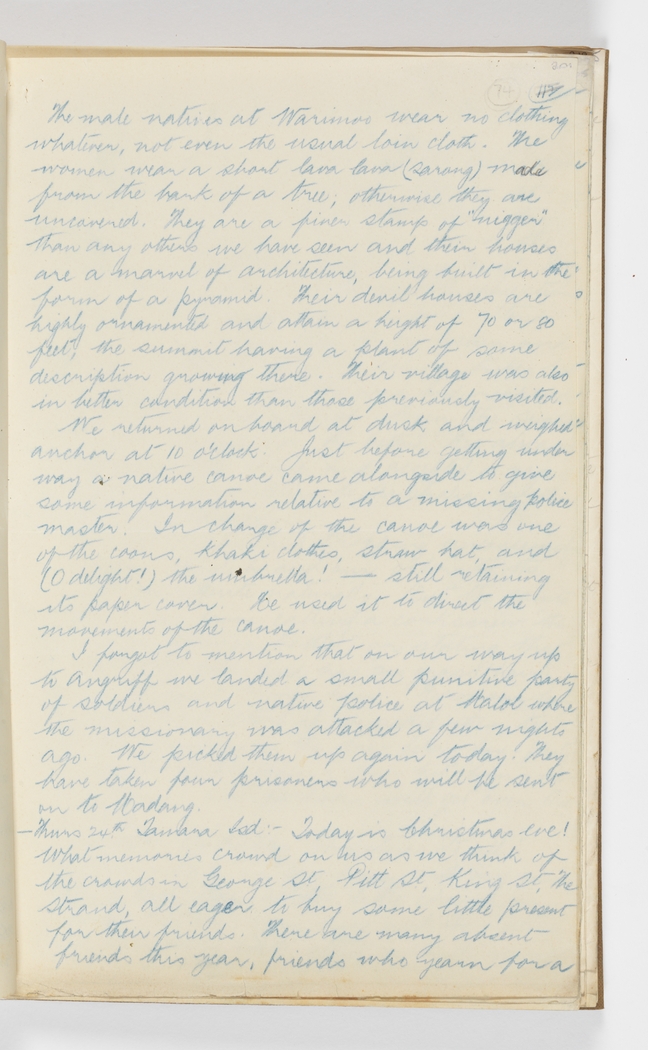 74
The male natives at Warimoo wear no clothing
whatever, not even the usual loin cloth. The
women wear a short lava lava (sarong) made
from the bark of a tree; otherwise they are
uncovered. They are a finer stamp of "nigger"
than any others we have seen and their houses
are a marvel of architecture, being built in the
form of a pyramid. Their devil houses are
highly ornamented and attain a height of 70 or 80
feet, the summit having a plant of some
description growing there. Their village was also
in better condition than those previously visited.
We returned on board at dusk and weighed
anchor at 10 o'clock. Just before getting under
way a native canoe came alongside to give
some information relative to a missing police
master. In charge of the canoe was one
of the coons, khaki clothes, straw hat, and
(O delight!) the umbrella! — still retaining
its paper cover. He used it to direct the
movements of the canoe.
I forgot to mention that on our way up
to Angriff we landed a small punitive party
of soldiers and native police at Malol where
the missionary was attacked a few nights
ago. We picked them up again today. They
have taken four prisoners who will be sent
on to Madang.
—Thurs 24th Tamara Isd:- Today is Christmas eve!
What memories crowd on us as we think of
the crowds in George St, Pitt St, King St, the
Strand, all eager to buy some little present
for their friends. There are many absent
friends this year, friends who yearn for a